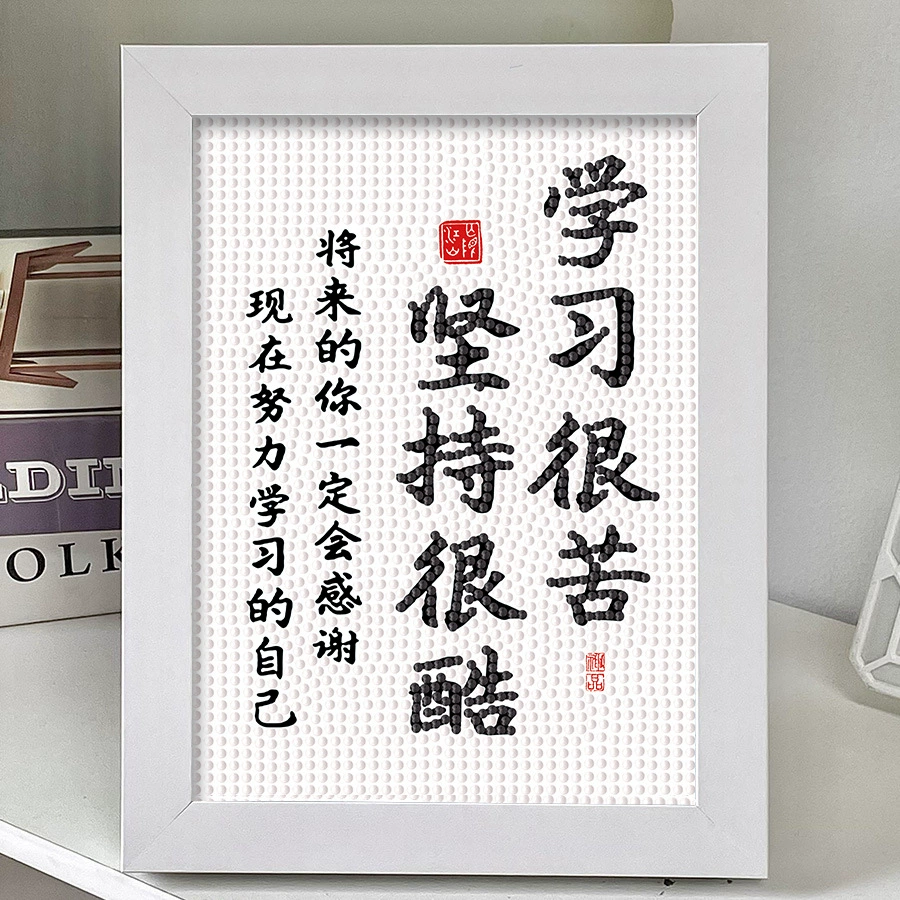 学习很苦
坚持很酷
将来的你一定会感谢
现在努力学习的自己
OLK